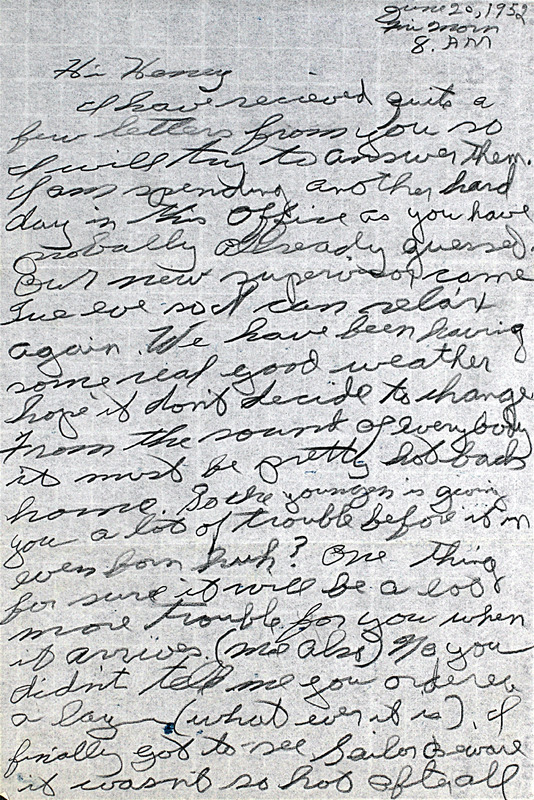 June 20, 1952
Fri Morn
8. AM
Hi Honey
I have recieved quite a
few letters from you so
I will try to answer them.
I am spending another hard
day in this Office as you have
probally allready guessed.
Our new supervisor came
Tue eve so I can relax
again. We have been having
some real good weather
hope it dont decide to change
From the sound of everybody
it must be pretty hot back
home. So the youngen is givin
you a lot of trouble before it is
even born huh? One thing
for sure it will be a lot
more trouble for you when
it arrives. (me also) No you
didn't tell me you ordered
a (what ever it is). I
finally got to see Sailor Beware
it wasn't so hot after all